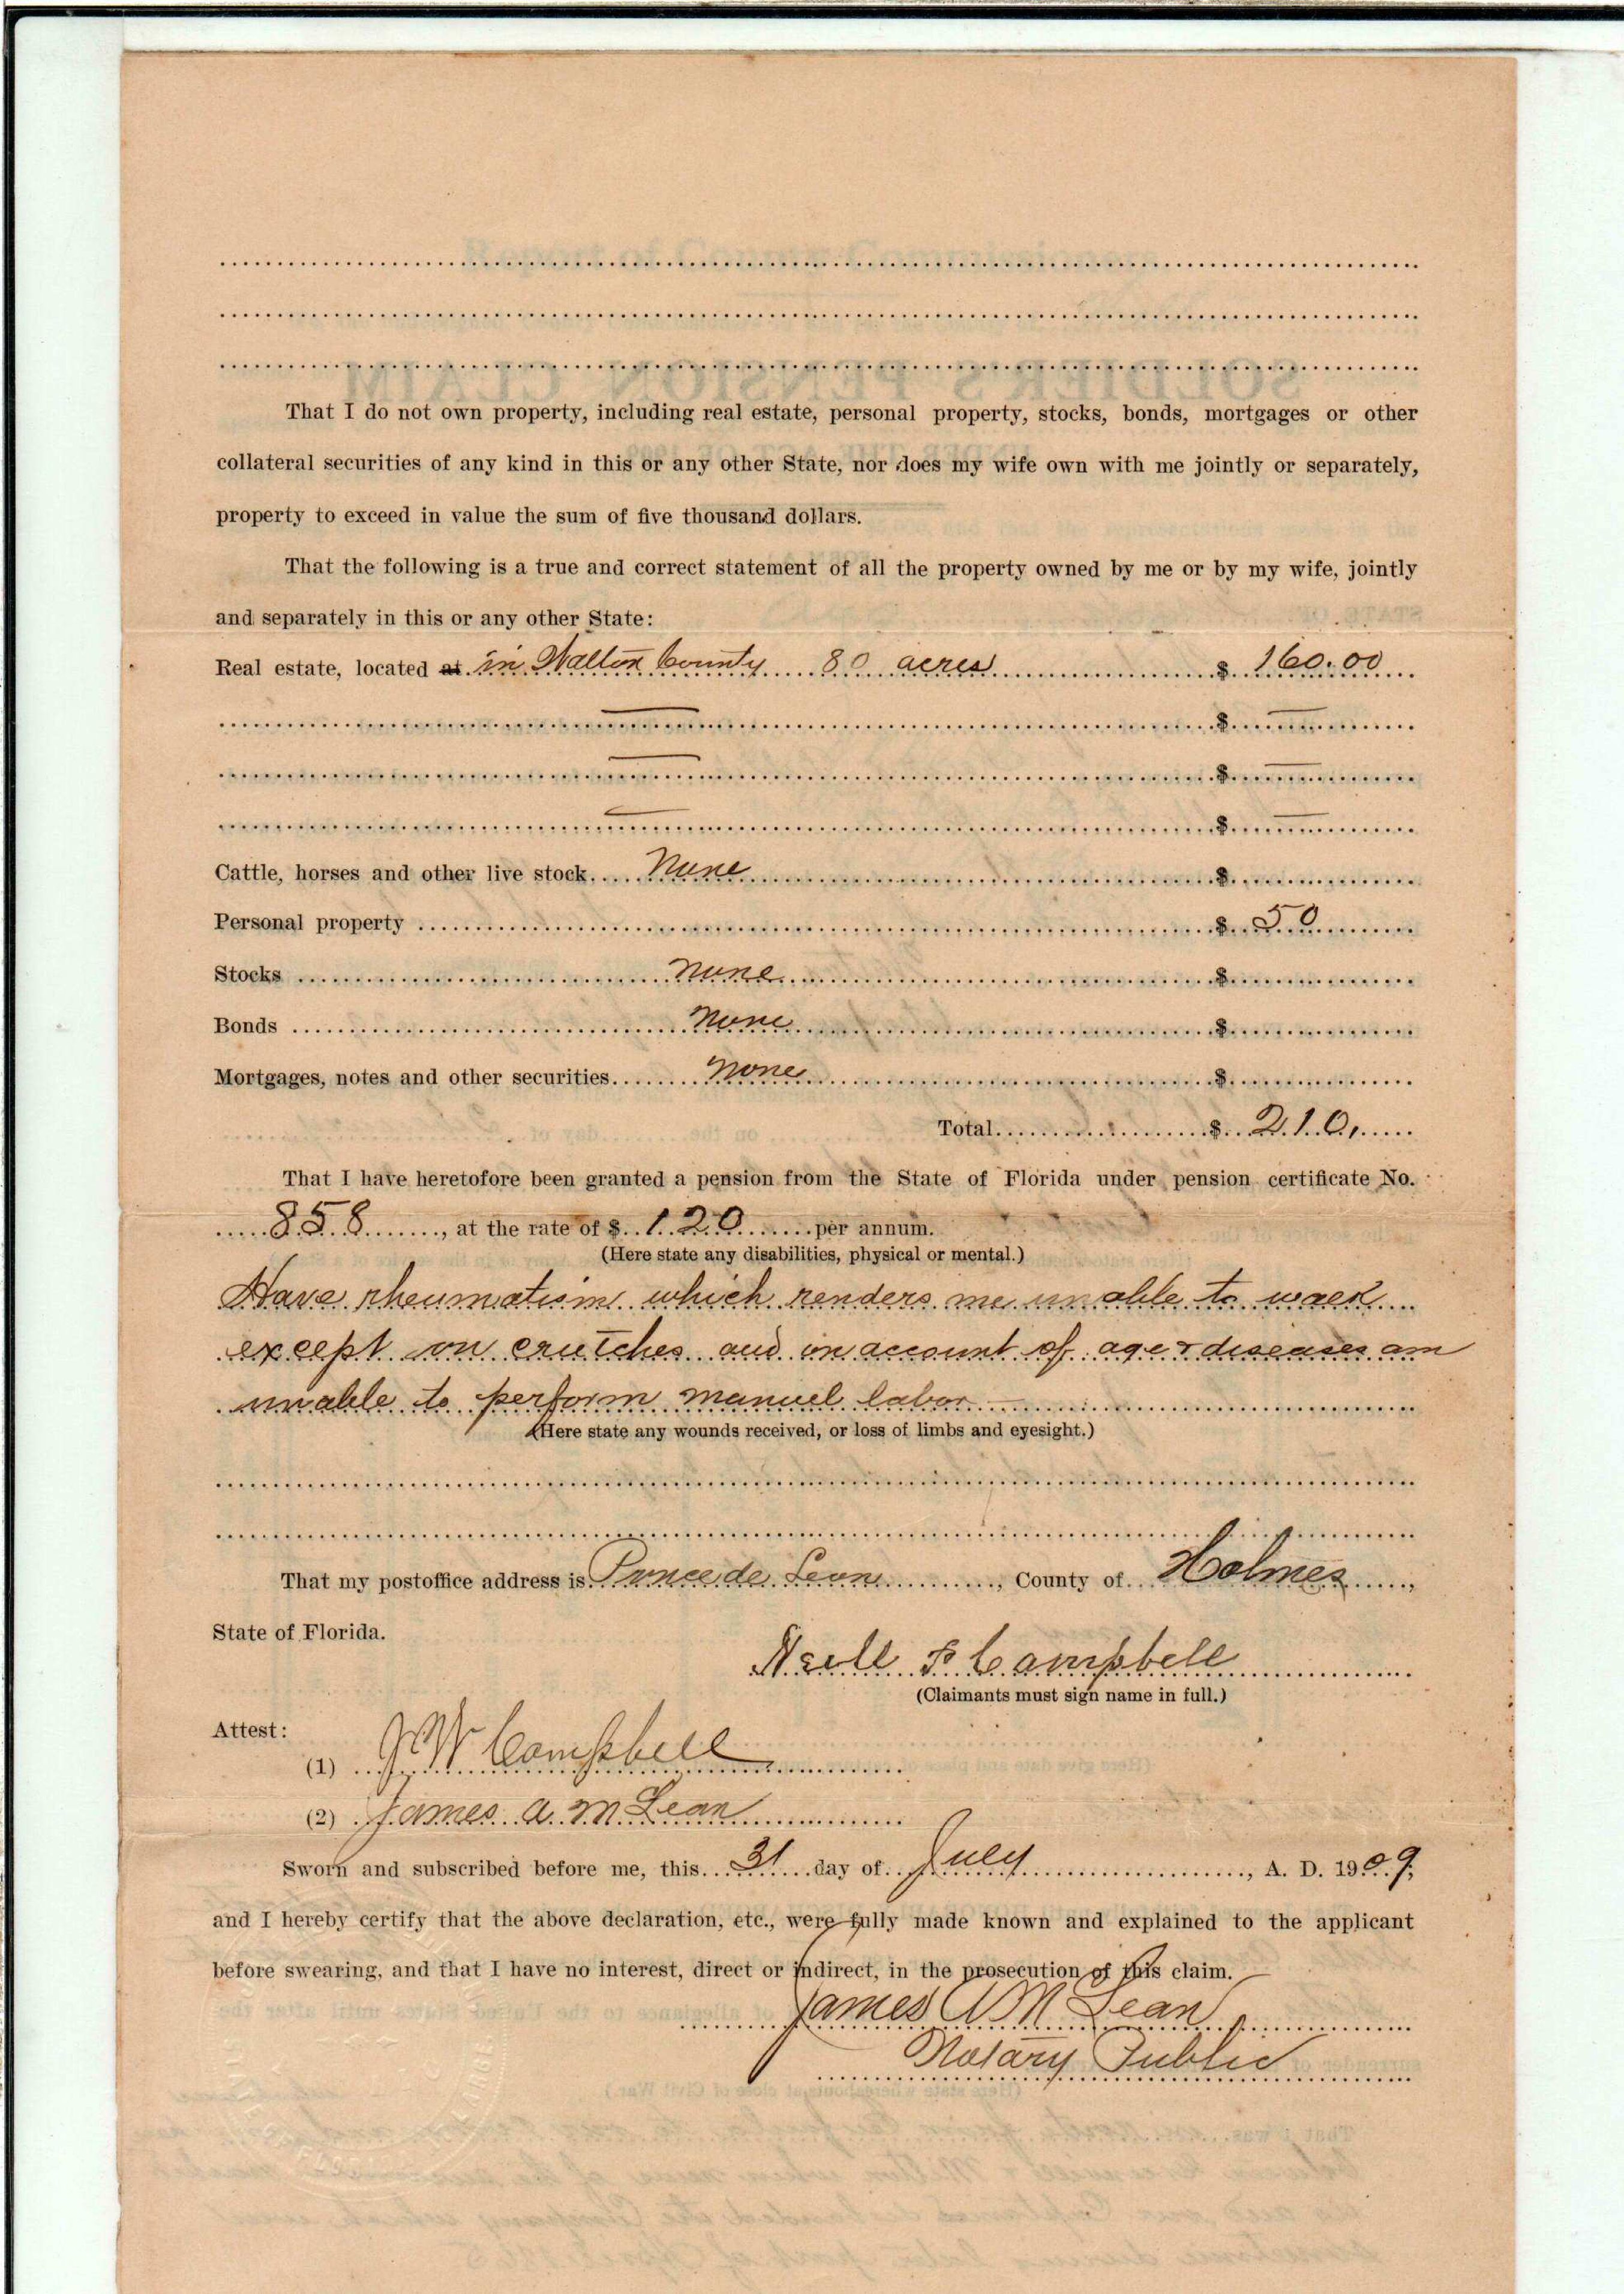 That I do not own property, including real estate, personal property, stocks, bonds, mortgages or other
collateral securities of any kind in this or any other State, nor does my wife own with me jointly or separately,
property to exceed in value the sum of five thousand dollars.
That the following is a true and correct statement of all the property owned by me or by my wife, jointly
and separately in this or any other State:
Real estate, located at in Walton County 80 acres $ 160.00
$
$
$
Cattle, horses and other live stock None $
Personal property $ 50
Stocks None $
Bonds None $
Mortgages, notes and other securities None $
Total $ 210,
That I have heretofore been granted a pension from the State of Florida under pension certificate No.
858, at the rate of $ 120 per annum.
(Here state any disabilities, physical or mental.)
Have rheumatism which renders me unable to walk
except on crutches and on account of age & diseases am
unable to perform manuel labor
(Here state any wounds received, or loss of limbs and eyesight.)
That my postoffice address is Ponce de Leon, County of Holmes,
State of Florida.
Neill Campbell
(Claimants must sign name in full.)
Attest:
(1) J W Campbell
(2) James A. McLean
Sworn and subscribed before me, this 31 day of July, A. D. 1909,
and I hereby certify that the above declaration, etc., were fully made known and explained to the applicant
before swearing, and that I have no interest, direct or indirect, in the prosecution of this claim.
James A McLean
Notary Public